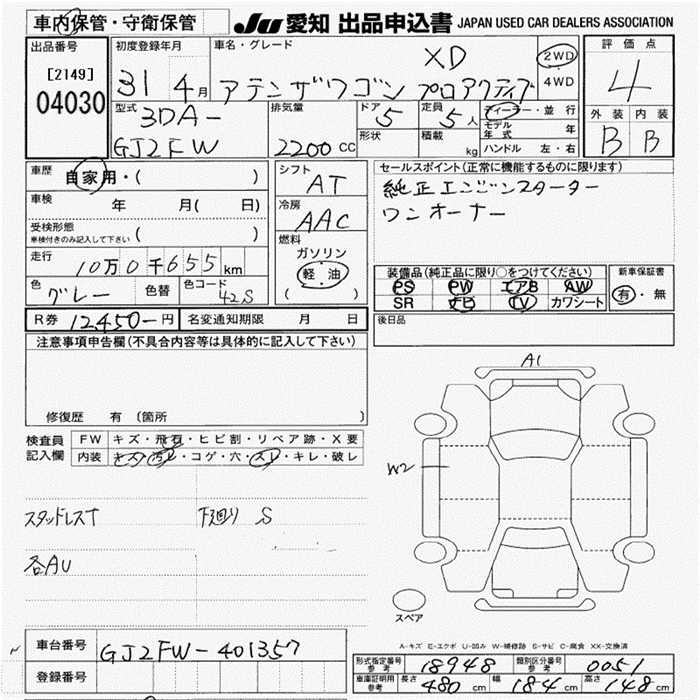 車内保管・守衛保管
JU 愛知 出品申込書 JAPAN USED CAR DEALERS ASSOCIATION
出品番号
[2149]
04030
初度登録年月
31 4月
車名・グレード
XD
アテンザワゴン プロアクティブ
2WD
4WD
評価点
4
外装 内装
B B
型式
3DA-
GJ2FW
排気量
2200 CC
ドア 5
形状
定員 5 人
積載 kg
ディーラー・並行
モデル年式 年
ハンドル 左・右
車歴 自家用・( )
車検 年 月( 日)
受検形態
車検付きのみ記入して下さい ( )
走行 10万0千655km
色 グレー 色替 色コード 42S
シフト
AT
冷房
AAC
燃料
ガソリン
軽・油
( )
セールスポイント(正常に機能するものに限ります)
純正エンジンスターター
ワンオーナー
装備品(純正品に限り○をつけてください)
PS PW エアB AW
SR ナビ TV カワシート
新車保証書
有・無
R券 12450-円 名変通知期限 月 日
後日品
注意事項申告欄(不具合内容等は具体的に記入して下さい)
修復歴 有 〔箇所
検査員記入欄
FW キズ・飛石・ヒビ割・リペア跡・X要
内装 キズ・汚レ・コゲ・穴・スレ・キレ・破レ
スタッドレスT 下廻り S
各AU
A1
W2
スペア
A-キズ E-エクボ U-凹み W-補修跡 S-サビ C-腐食 XX-交換済
車台番号 GJ2FW-401357
登録番号
形式指定番号 参考 18948 類別区分番号 参考 0051
車庫証明用 参考 長さ 480 cm 幅 184 cm 高さ 148 cm